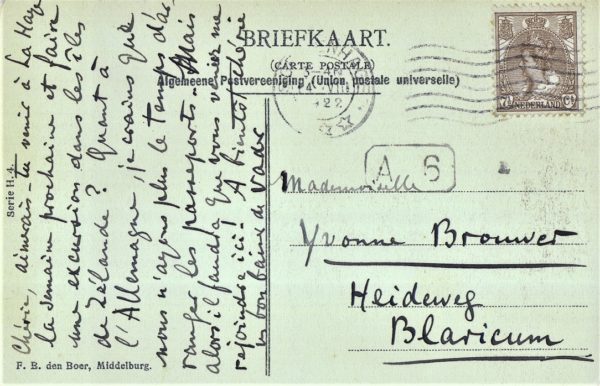 BRIEFKAART.
(CARTE POSTALE)
Algemeene Postvereeniging (Union postale universelle)
22
7½ Ct
NEDERLAND
A 6
Mademoiselle
Yvonne Brouwer
Heideweg
Blaricum
Chérie, aimerais-tu venir à La Haye
la semaine prochaine et faire
une excursion dans les îles
de Zélande? Quant à
l'Allemagne, je crains que
nous n'ayons plus le temps d'ar
ranger les passeports. Mais
alors il faudra que vous veniez me
rejoindre ici! A bientôt chérie
un bon baiser de
Serie H. 4.
F. B. den Boer, Middelburg.